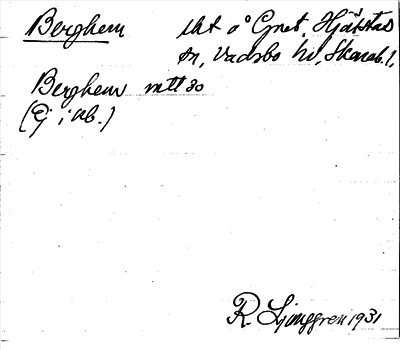 Berghem
Hjälstad
sn, Vadsbo hd, Skarab. l.
Berghem mtl 30
(Ej i ub.)
R. Ljunggren 1931